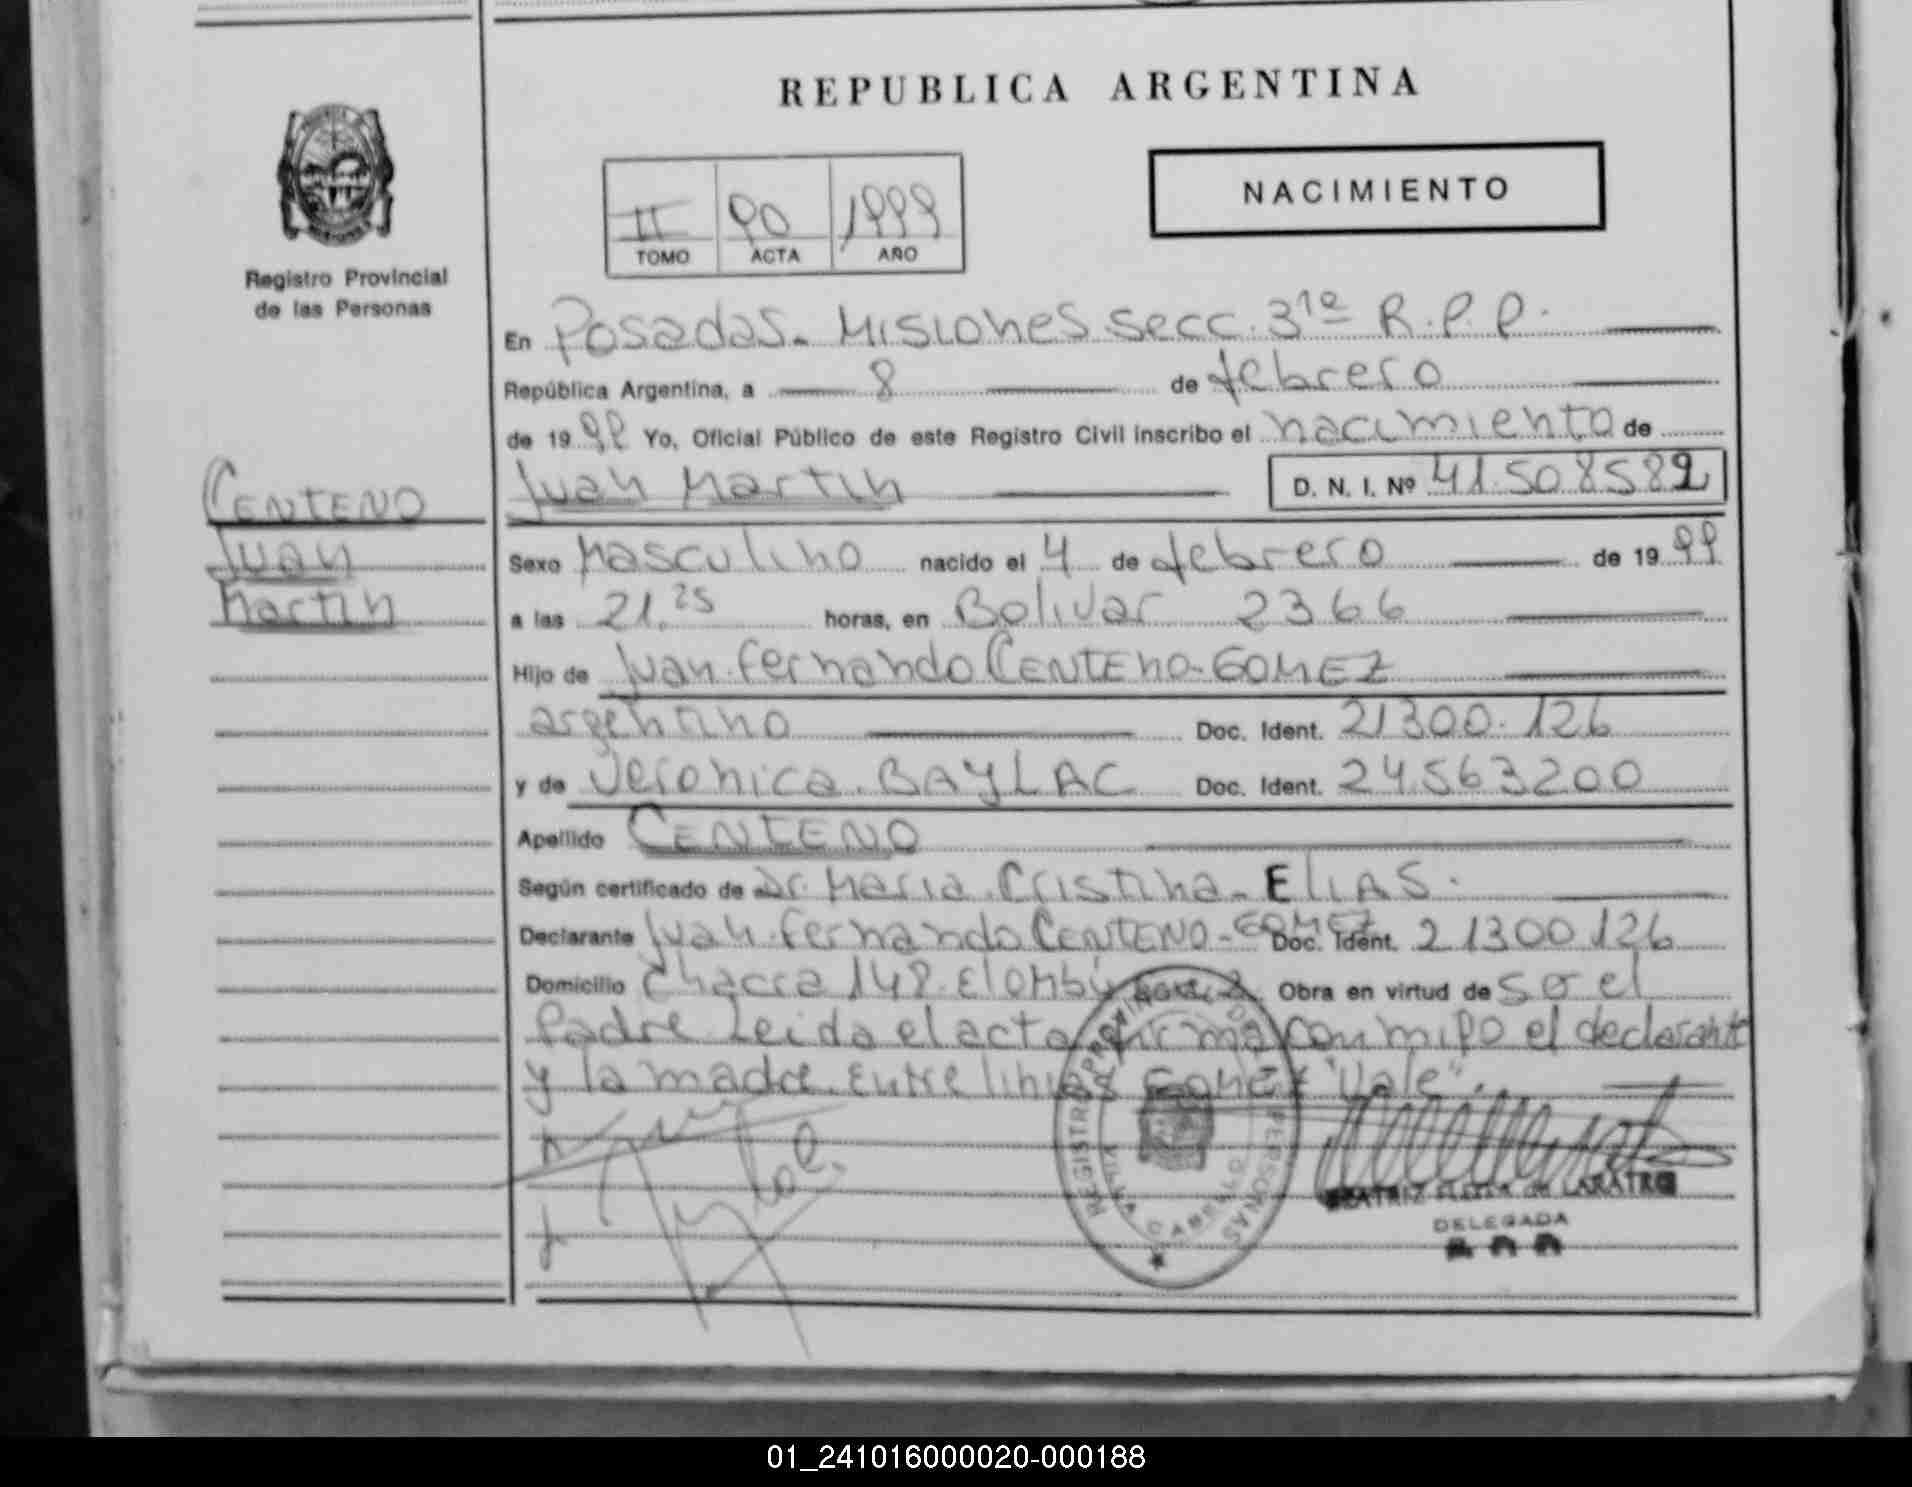 REPUBLICA ARGENTINA
NACIMIENTO
II 90 1999
TOMO ACTA AÑO
Registro Provincial
de las Personas
En Posadas. Misiones secc. 31ª R.P.P.
República Argentina, a 8 de febrero
de 19 99 Yo, Oficial Público de este Registro Civil inscribo el nacimiento de
CENTENO
Juan
Martin
Juan Martin D. N. I. Nº 41.508582
Sexo Masculino nacido el 4 de febrero de 19 99
a las 21.25 horas, en Bolivar 2366
Hijo de Juan Fernando CENTENO-GOMEZ
argentino Doc. Ident. 21300.126
y de Veronica. BAYLAC Doc. Ident. 24.563200
Apellido CENTENO
Según certificado de Dr. Maria Cristina ELIAS.
Declarante Juan Fernando CENTENO-GOMEZ Doc. Ident. 21300126
Domicilio Chacra 148. El Ombú Obra en virtud de ser el
Padre Leida el acta firma con mipo el declarante
y la madre. Entre linias Gomez "Vale".
REGISTRO PROVINCIAL DE PERSONAS
CABELLO
BEATRIZ de LARATRO
DELEGADA
01_241016000020-000188